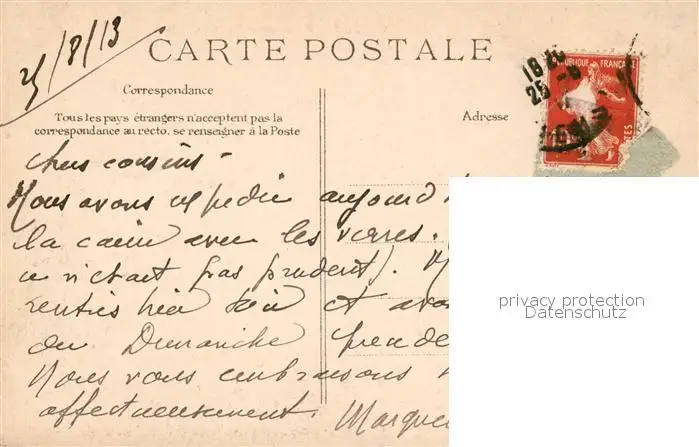 25/8/13
CARTE POSTALE
Correspondance
Tous les pays étrangers n'acceptent pas la
correspondance au recto, se renseigner à la Poste
Adresse
18
25-8
RÉPUBLIQUE FRANÇAISE
POSTES
chers cousins -
Nous avons expédié aujourd
la caisse avec les verres.
ce n'était pas prudent).
rentrés hier soir et avo
du Dimanche
Nous vous embrassons
affectueusement. Margue
privacy protection
Datenschutz